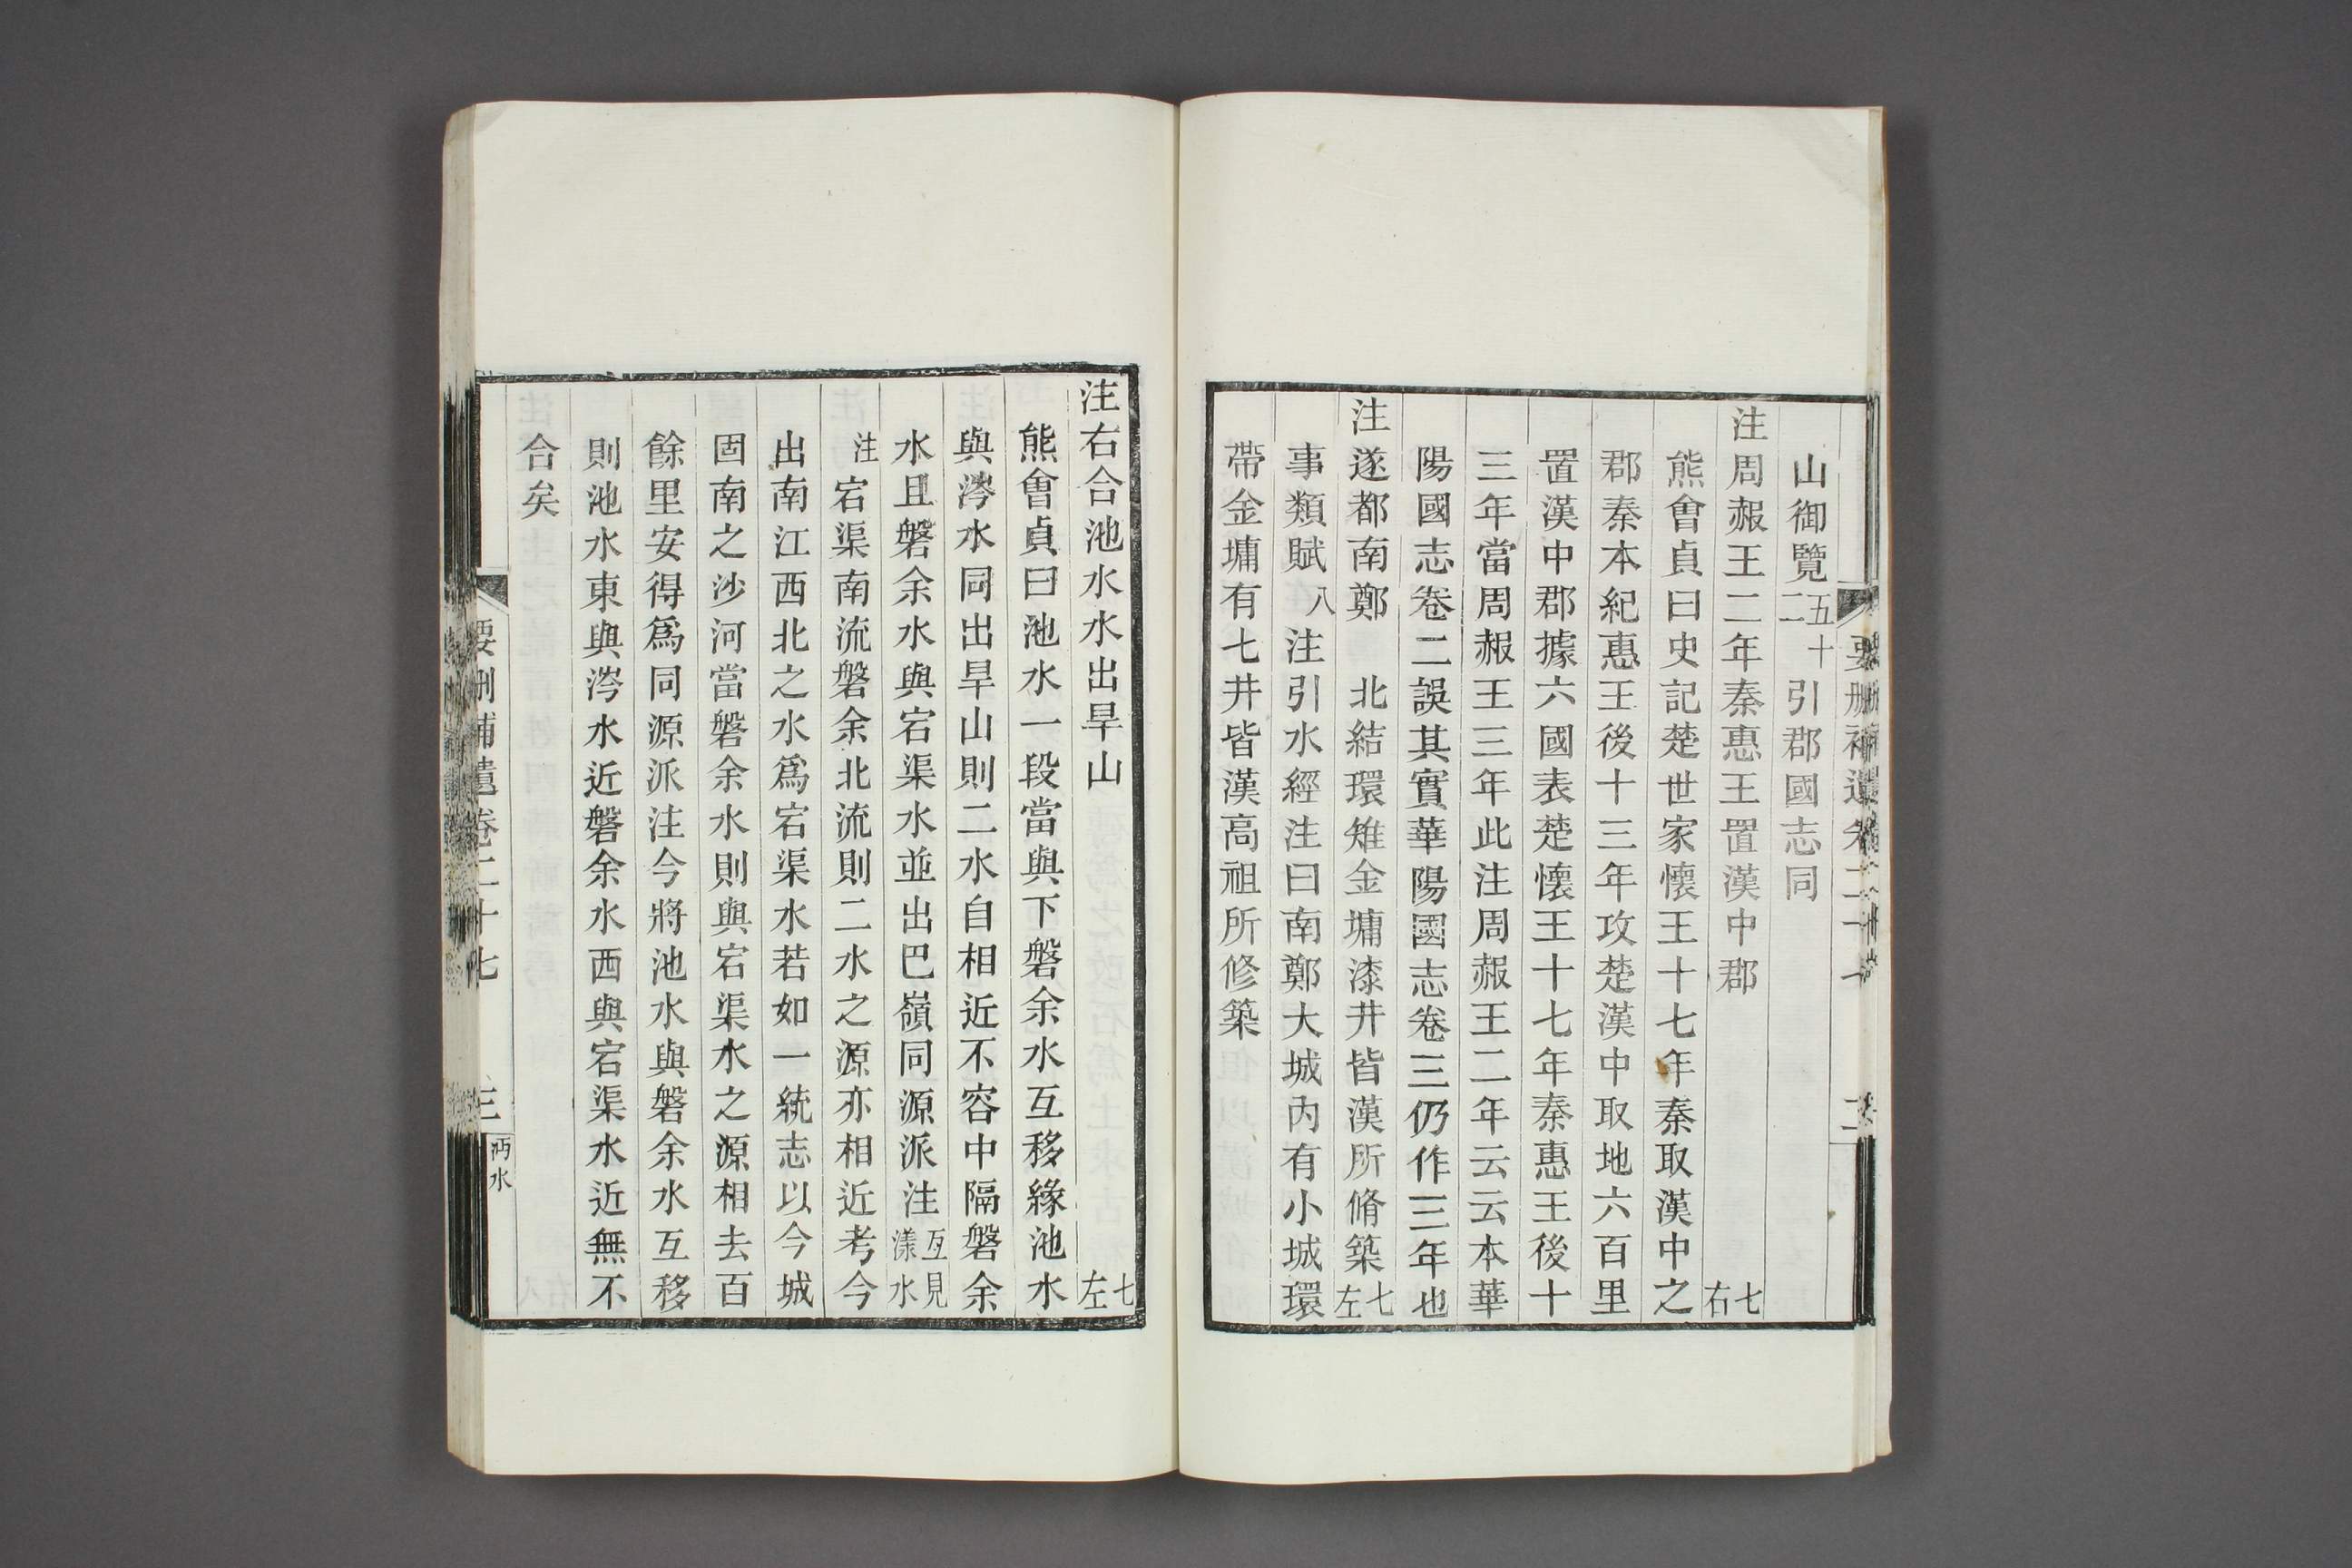 山御覽五十二引郡國志同
注周赧王二年秦惠王置漢中郡 七右
熊會貞曰史記楚世家懷王十七年秦取漢中之
郡秦本紀惠王後十三年攻楚漢中取地六百里
置漢中郡據六國表楚懷王十七年秦惠王後十
三年當周赧王三年此注周赧王二年云云本華
陽國志卷二誤其實華陽國志卷三仍作三年也
注遂都南鄭 北結環雉金墉漆井皆漢所脩築 七左
事類賦八注引水經注曰南鄭大城內有小城環
帶金墉有七井皆漢高祖所修築
注右合池水水出旱山 七左
熊會貞曰池水一段當與下磐余水互移緣池水
與涔水同出旱山則二水自相近不容中隔磐余
水且磐余水與宕渠水並出巴嶺同源派注互見漾水
注宕渠南流磐余北流則二水之源亦相近考今
出南江西北之水爲宕渠水若如一統志以今城
固南之沙河當磐余水則與宕渠水之源相去百
餘里安得爲同源派注今將池水與磐余水互移
則池水東與涔水近磐余水西與宕渠水近無不
合矣
要刪補遺卷二十七
三
沔水